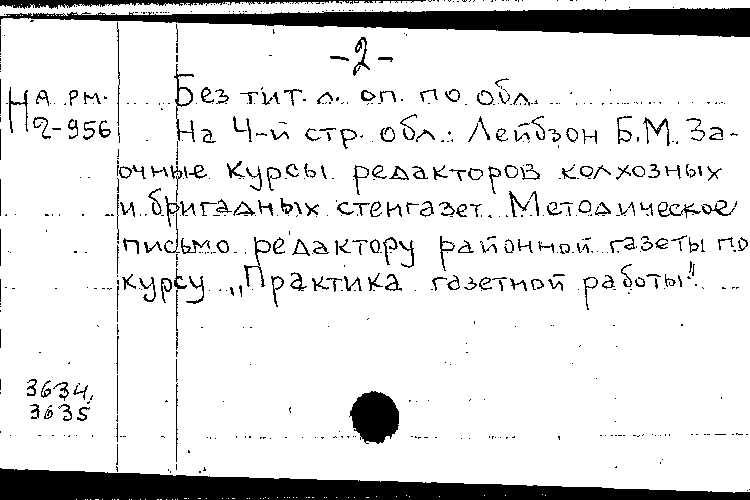 -2-
На рм.
2-956
Без тит. л. оп. по обл.
На 4-й стр. обл.: Лейбзон Б.М. За-
очные курсы редакторов колхозных
и бригадных стенгазет. Методическое
письмо редактору районной газеты по
курсу „Практика газетной работы".
3634,
3635